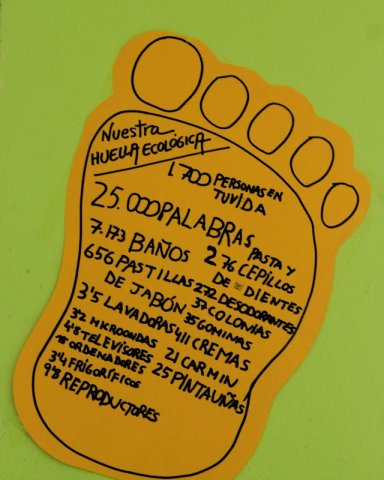 Nuestra
HUELLA ECOLÓGICA
1.700 PERSONAS EN
TU VIDA
25.000 PALABRAS
7.173 BAÑOS
276 PASTA Y
CEPILLOS
DE DIENTES
656 PASTILLAS
DE JABÓN
272 DESODORANTES
37 COLONIAS
35 GOMINAS
3'5 LAVADORAS
411 CREMAS
3'2 MICROONDAS
21 CARMIN
4'8 TELEVISORES
25 PINTAUÑAS
ORDENADORES
3'4 FRIGORÍFICOS
9'8 REPRODUCTORES